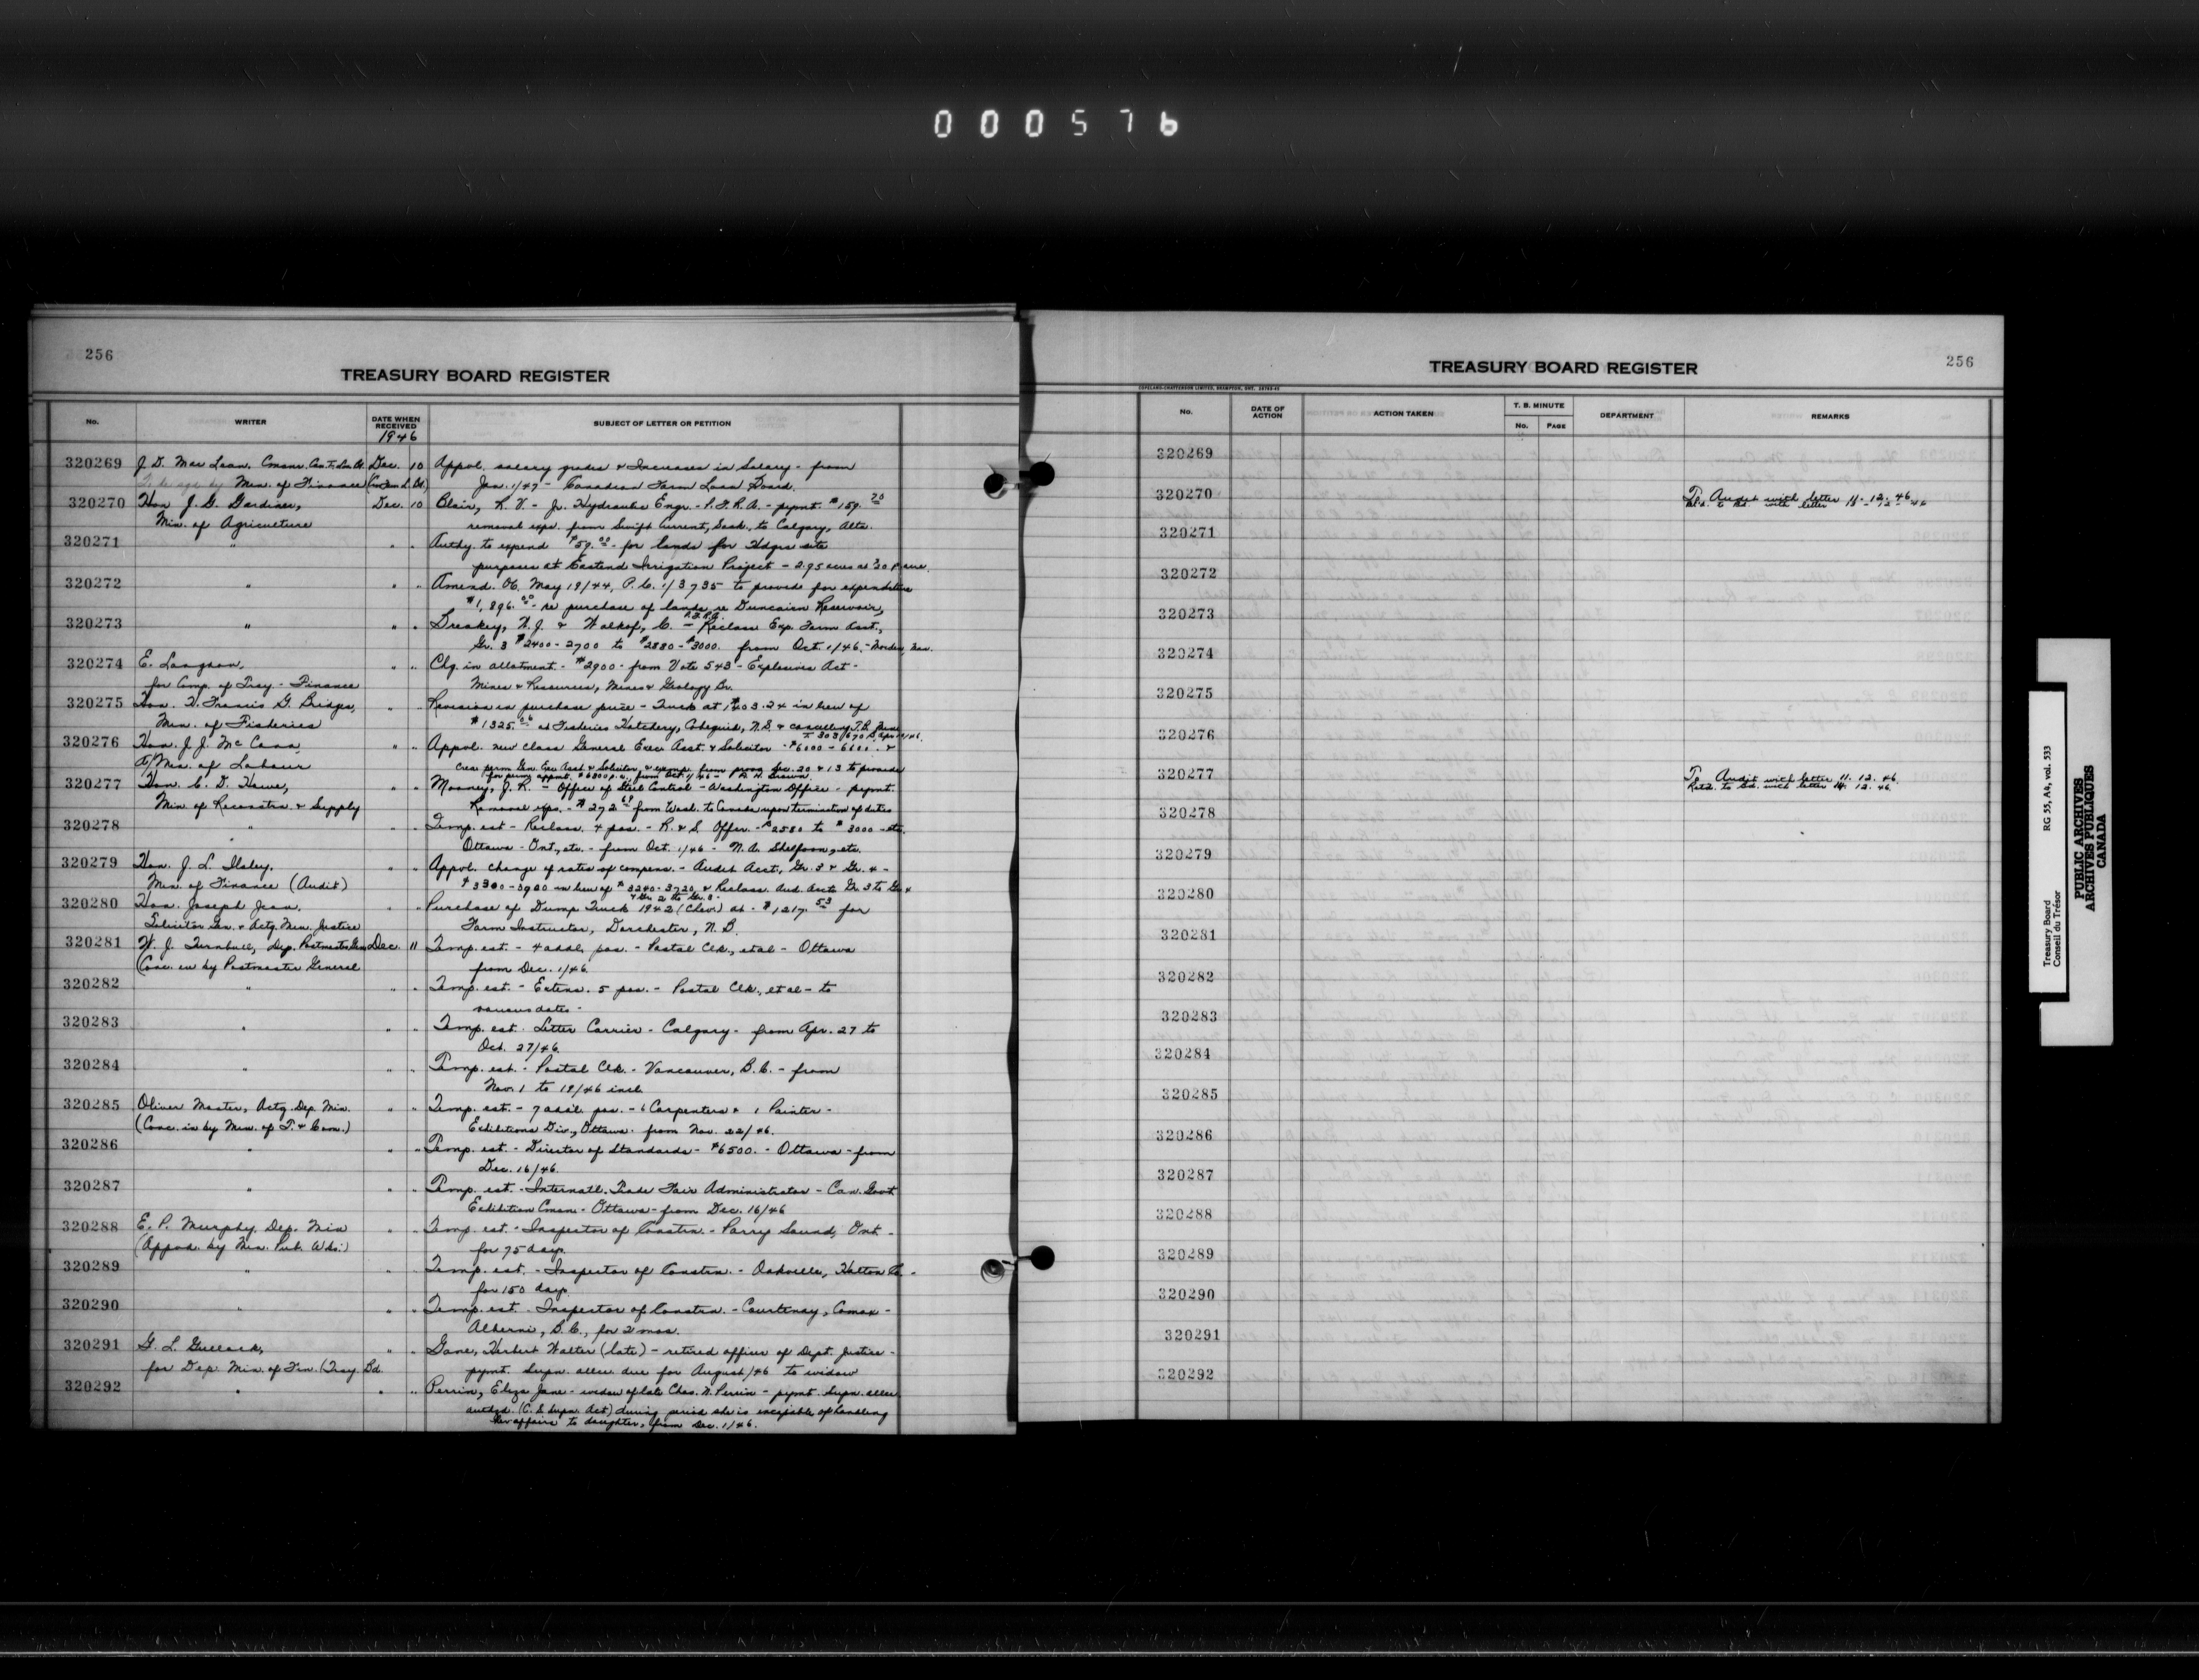 000576
256
TREASURY BOARD REGISTER
No. WRITER DATE WHEN RECEIVED SUBJECT OF LETTER OR PETITION
1946
320269 J. D. Mac Lean, Dec. 10 Appvl. salary grades & Increases in Salary - from
Min. of Finance Jan. 1/47 - Canadian Farm Loan Board.
320270 Hon J. G. Gardiner, Dec. 10 Blair, R. V. - Jr. Hydraulic Engr. - P.F.R.A. - pymt. $159.70
Min. of Agriculture removal exps. from Swift Current, Sask., to Calgary, Alta.
320271 " " " Authy. to expend $59.00 - for lands for
purposes at Eastend Irrigation Project - 2.95 acres at $20 P. acre.
320272 " " " Amend. OC. May 19/44, P.C. 1/3735 to provide for expenditure
$1,896.00 - re purchase of lands re Duncairn Reservoir,
P.F.R.A.
320273 " " " & Walkof, C. - Reclass Exp. Farm Asst.,
Gr. 3 $2400 - 2700 to $2880 - $3000. from Oct. 1/46. - Morden, Man.
320274 E. Langdon, " " Chg. in allotment - $2900 - from Vote 543 - Explosives Act -
for Comp. of Trey - Finance Mines & Resources, Mines & Geology Br.
320275 Hon. H. Francis G. Bridges, " " Revision in purchase price - Truck at 1403.24 in lieu of
Min. of Fisheries $1325. at Fisheries Hatchery, Cobequid, N.S. & cancelling T.B. Min.
320276 Hon. J. J. McCann " " Appvl. new class General Exec Asst. & Solicitor - $6000 - 6600. &
A/Min. of Labour crea. perm Gen. Exec Asst. & Solicitor, & exemp. from provs Sec. 20 & 13 to provide
for perm appmt. $6300 p.a., from Oct. 1/46 - A. H. Brown.
320277 Hon. C. D. Howe, " " Mooney, J. R. - Office of Steel Control - Washington Office - pymt.
Min of Reconstn. & Supply Removal exps. - $272.69 from Wash. to Canada upon termination of duties
320278 " " " Temp. est - Reclass. 4 pos. - R. & S. Offer. - $2580 to $3000 - etc.
Ottawa - Ont., etc. - from Oct. 1/46 - N. A. Shelfoon, etc.
320279 Hon. J. L. Ilsley, " " Appvl. change of rates of compens. - Audit Acct., Gr. 3 & Gr. 4 -
Min. of Finance (Audit) $3300 - 3900 in lieu of $3240 - 3720, & Reclass. Aud. Accts Gr. 3 to Gr. 4
& Gr. 2 to Gr. 3 -
320280 Hon. Joseph Jean, Purchase of Dump Truck 1942 (Chev.) at - $1217.53 for
Solicitor Gen. & Actg. Min. Justice Farm Instructor, Dorchester, N. B.
320281 W. J. Turnbull, Dep. Postmaster Gen. Dec. 11 Temp. est. - 4 addl. pos. - Postal Clk., et al - Ottawa
(Conc. in by Postmaster General from Dec. 1/46.
320282 " " " Temp. est. - Extens. 5 pos. - Postal Clk., et al - to
various dates -
320283 " " " Temp. est. Letter Carrier - Calgary - from Apr. 27 to
Oct. 27/46.
320284 " " " Temp. est. - Postal Clk. - Vancouver, B.C. - from
Nov. 1 to 19/46 incl.
320285 Oliver Master, Actg. Dep. Min. " " Temp. est. - 7 addl. pos. - 6 Carpenters & 1 Painter -
(Conc. in by Min. of T. & Com.) Exhibitions Div., Ottawa - from Nov. 22/46.
320286 " " " Temp. est. - Director of Standards - $6500. - Ottawa - from
Dec. 16/46.
320287 " " " Temp. est. - Internatl. Trade Fair Administrator - Can. Govt.
Exhibition Cmsn. - Ottawa - from Dec. 16/46
320288 E. P. Murphy, Dep. Min " " Temp. est. - Inspector of Constrn. - Parry Sound, Ont. -
(Appvd. by Min. Pub. Wks.) for 75 days.
320289 " " " Temp. est. - Inspector of Constrn. - Oakville, Halton Co. -
for 150 days.
320290 " " " Temp. est. - Inspector of Constrn. - Courtenay, Comox -
Alberni, B.C., for 2 mos.
320291 G. L. " " Gane, Herbert Walter (late) - retired officer of Dept. Justice -
for Dep. Min. of Fin. (Trey. Bd. pymt. Supn. allce. due for August/46 to widow
320292 " " " Perrin, Eliza Jane - widow of late Chas. N. Perrin - pymt. Supn. allce.
authzd. (C. S. Supn. Act) during period she is incapable of handling
her affairs to daughter, from Dec. 1/46.
TREASURY BOARD REGISTER
256
COPELAND-CHATTERSON LIMITED, BRAMPTON, ONT.
No. DATE OF ACTION ACTION TAKEN T. B. MINUTE No. PAGE DEPARTMENT REMARKS
320269
320270 To Audit with letter 11. 12. 46
320271
320272
320273
320274
320275
320276
320277 To Audit with letter 11. 12. 46.
Retd. to Bd. with letter 14. 12. 46.
320278
320279
320280
320281
320282
320283
320284
320285
320286
320287
320288
320289
320290
320291
320292
Treasury Board RG 55, A4, vol. 533
Conseil du Trésor
PUBLIC ARCHIVES
ARCHIVES PUBLIQUES
CANADA